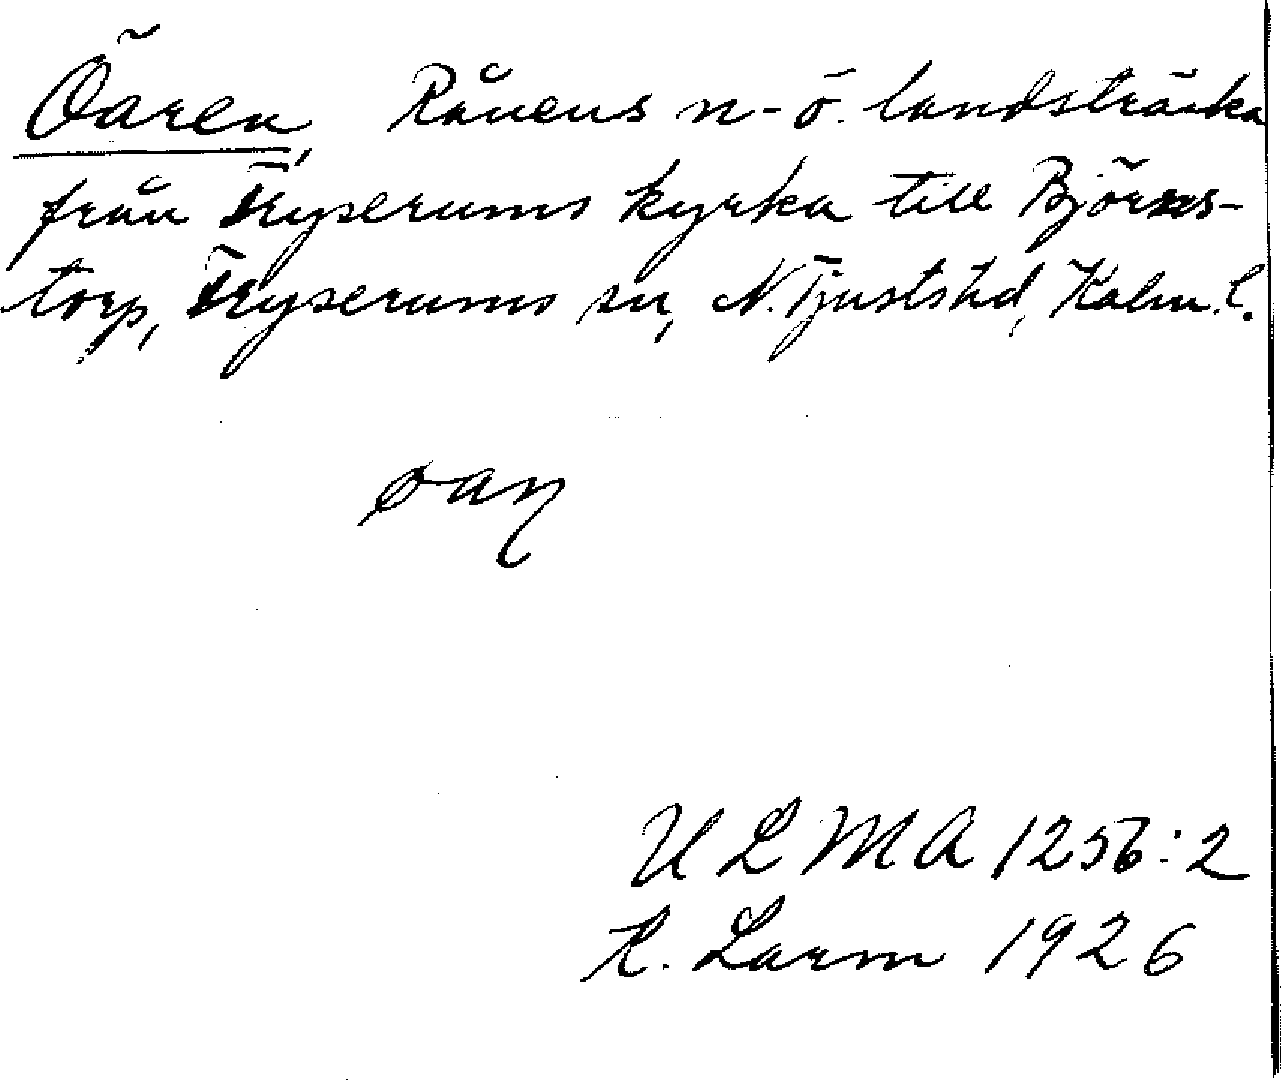 Öaren, Rånens n-ö. landsträcka
från Tryserums kyrka till Björns-
torp, Tryserums sn, N. Tjusts hd, Kalm. l.
øaꞃ
ULMA 1256:2
K. Larm 1926